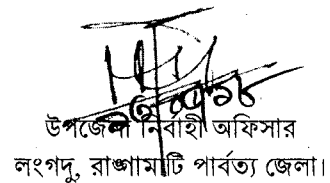 উপজেলা নির্বাহী অফিসার
লংগদু, রাঙ্গামাটি পার্বত্য জেলা।